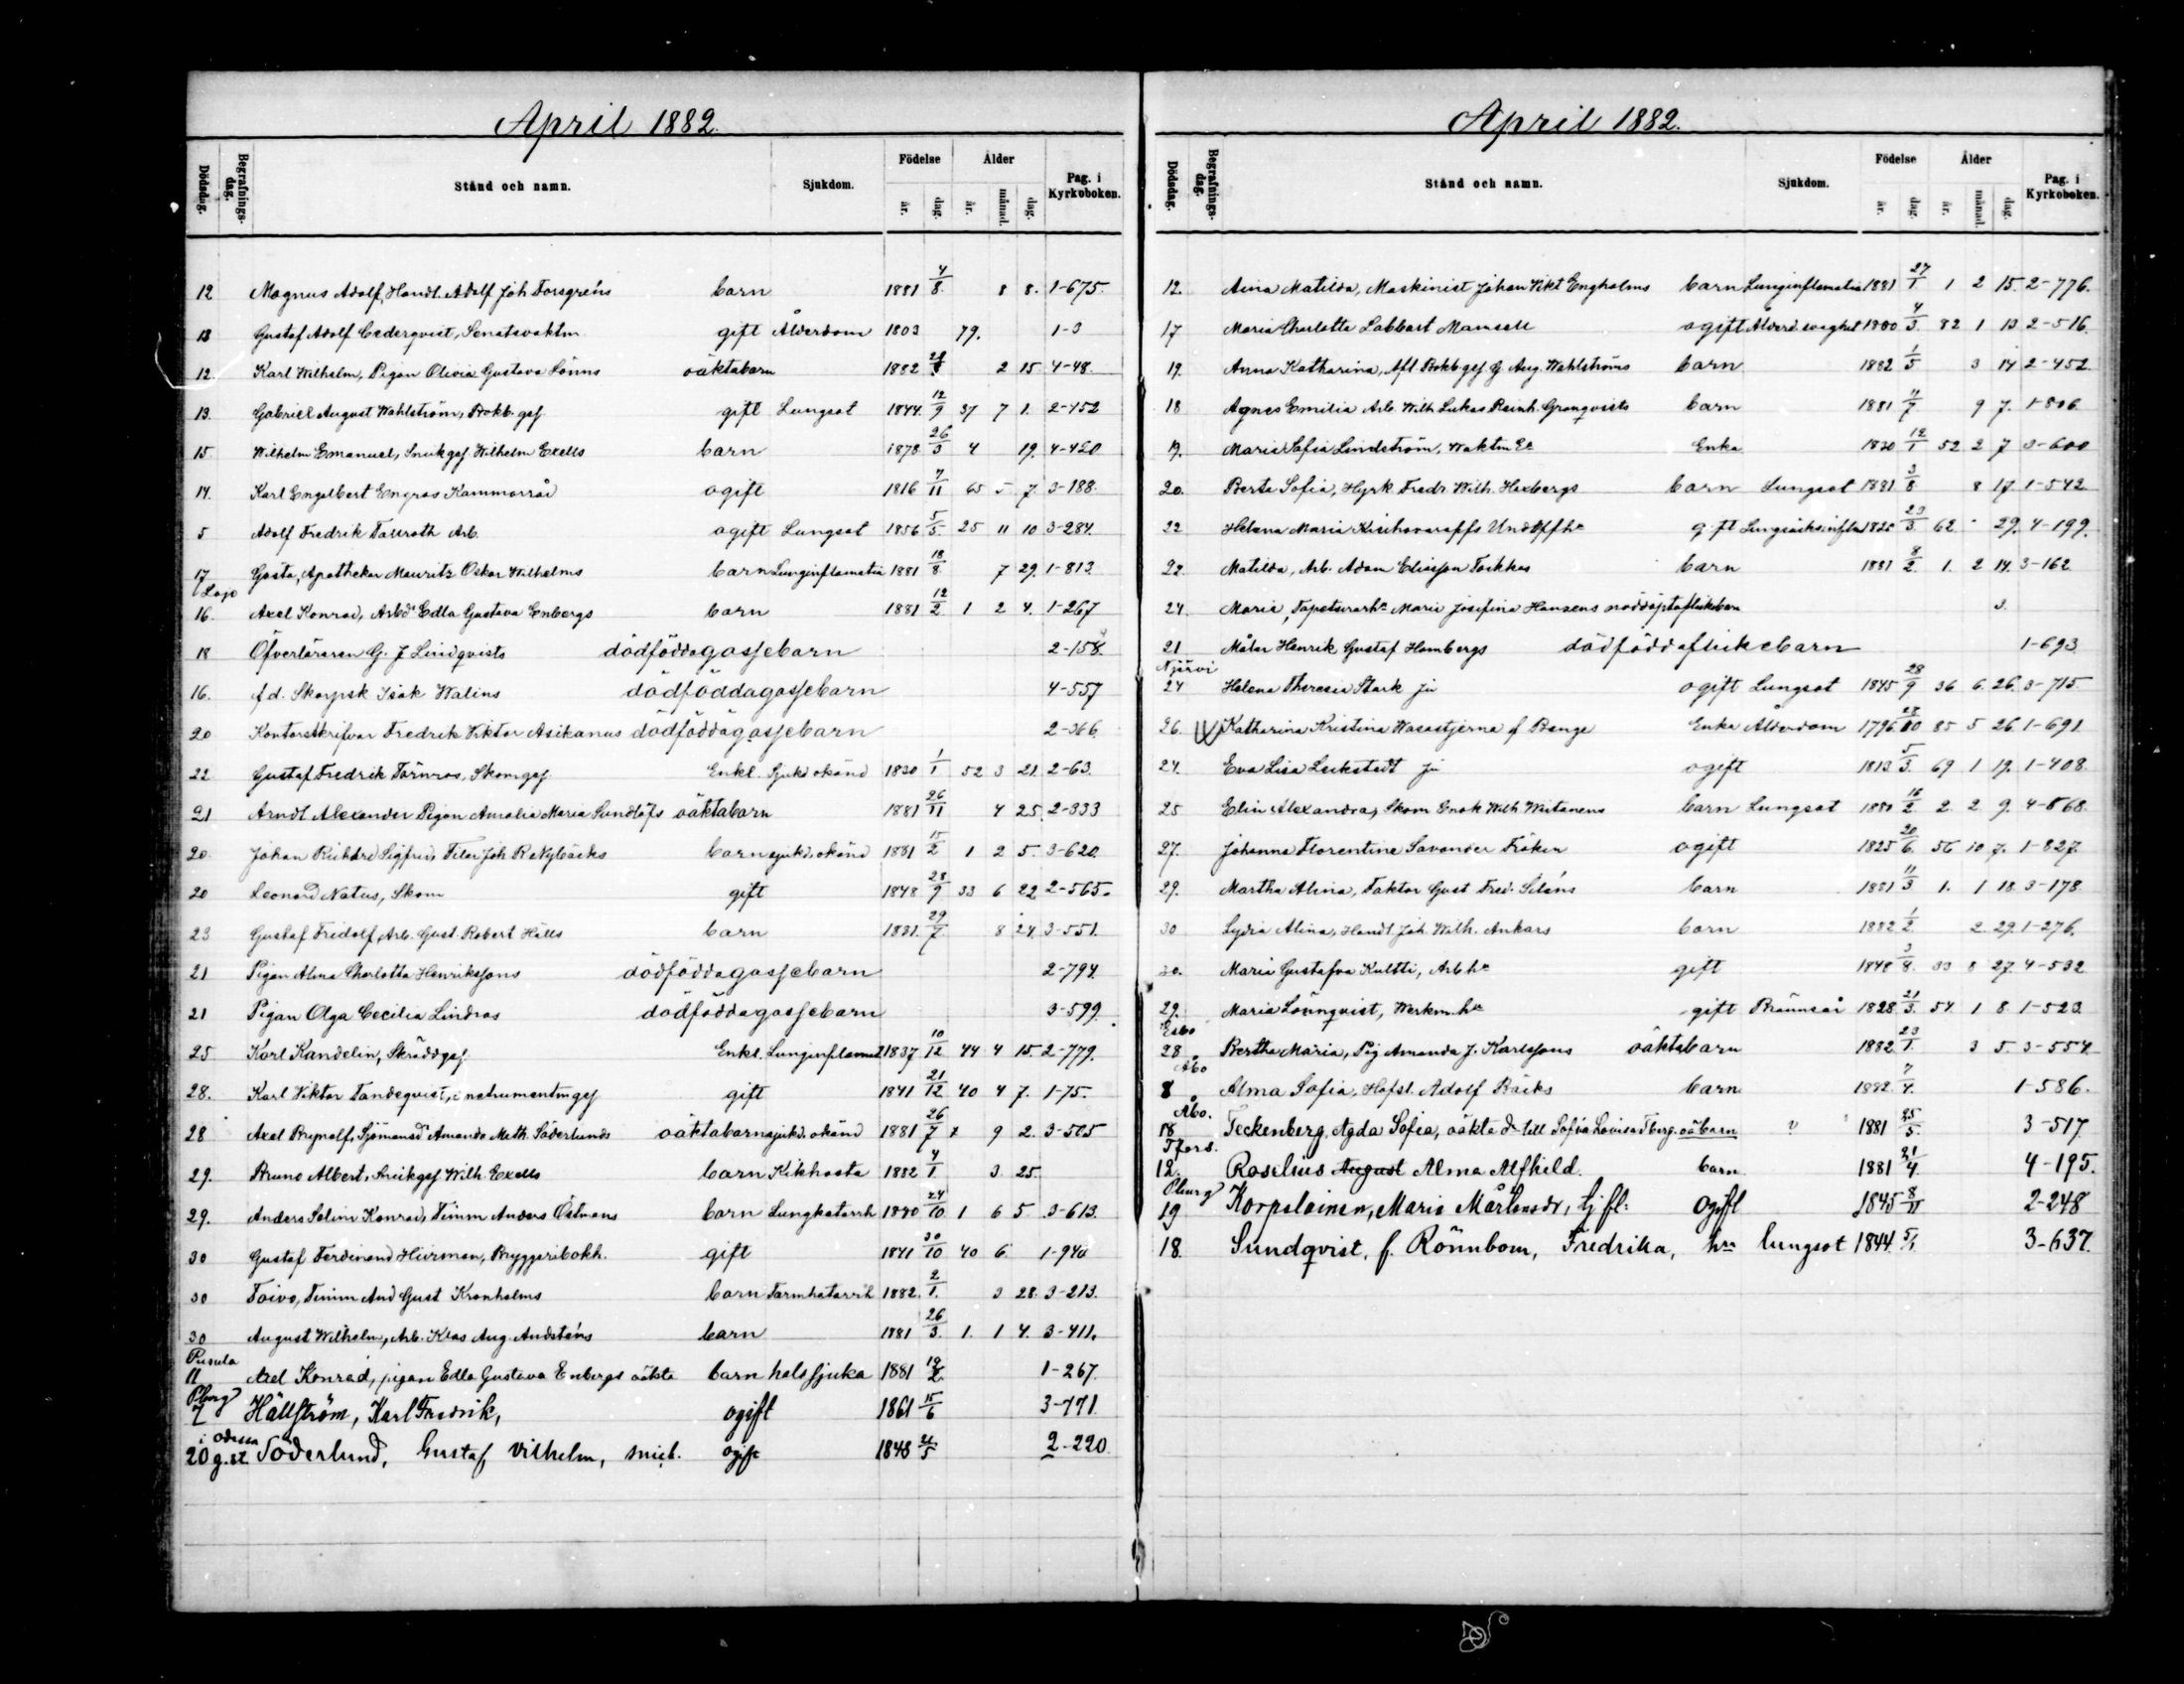 April 1882.
Dödsdag. Begrafnings-dag. Stånd och namn. Sjukdom. Födelse år. dag. Ålder år. månad. dag. Pag. i Kyrkoboken.
12 Magnus Adolf, Handl. Adolf Joh Forsgréns barn 1881 4/8 8 8. 1-675.
13 Gustaf Adolf Cederqvist, Senatsvaktm gift Ålderdom 1803 79. 1-3
12. Karl Wilhelm, Pigan Olivia Gustava Lönns oäktabarn 1882 2 15 4-48.
13. Gabriel August Wahlström, Bokb. gesj gift Lungsot 1844. 12/9 37 7 1. 2-452
15 Wilhelm Emanuel, Snickgesj Wilhelm Exells barn 1878 26/3 4 19. 4-420
14. Karl Engelbert Engros Kammarråd ogift 1816 7/11 65 5 7. 3-188.
5 Adolf Fredrik Tallroth Arb. ogift Lungsot 1856 5/5 25 11 10 3-284.
17 Gösta, Apothekar Mauritz Oskar Wilhelms barn Lunginflamatia 1881 18/8 7 29. 1-813.
Lojo
16. Axel Konrad, Arbd Edla Gustava Enbergs barn 1881 12/2 1 2 4. 1-267
18 Öfverläraren G. J Lindqvists dödföddagossebarn 2-158.
16. f.d. Skarpsk Isak Walins dödföddagossebarn 4-557
20 Kontorskrifvar Fredrik Viktor Asikanus dödföddagossebarn 2-366.
22 Gustaf Fredrik Törnros, Skomgesj Enkl. Sjukd okänd 1830 1/1 52 3 21. 2-63.
21 Arndt Alexander Pigan Amalia Maria Sundlöfs oäktabarn 1881 26/11 4 25. 2-333
20. Johan Rickard Sigfrid, Filar Joh R Nybäcks barn sjukd. okänd 1881 15/2 1 2 5. 3-620.
20 Leonard Natus, Skom gift 1848 28/9 33 6 22 2-565.
23 Gustaf Fridolf, Arb. Gust. Robert Hälls barn 1881. 29/7 8 24. 3-551.
21 Pigan Alma Charlotta Henrikssons dödföddagossebarn 2-794.
21 Pigan Olga Cecilia Lindros dödföddagossebarn 3-599.
25 Karl Kandelin, Skräddgesj Enkl. Lunginflamat 1837 10/12 44 4 15. 2-779.
28. Karl Viktor Tandeqvist, instrumentmgesj gift 1841 21/12 40 4 7. 1-75.
28 Axel Brynolf, Sjömansd Amanda Math. Söderlunds oäktabarn sjukd. okänd 1881 26/7 9 2. 3-505
29. Bruno Albert, Snickgesj Wilh. Exells barn Kikhosta 1882 4/1 3 25.
29. Anders Selim Konrad, Timm Anders Östmans barn Lungkatarrh 1880 24/10 1 6 5 3-613.
30 Gustaf Ferdinand Hürman, Bryggeribokh. gift 1841 30/10 40 6 1-940
30 Toivo, Timm And Gust Kronholms barn Tarmkatarrh 1882. 2/1 3 28. 3-213.
30 August Wilhelm, Arb. Klas Aug. Andsténs barn 1881 26/3. 1. 1 4. 3-411.
Pusula
11 Axel Konrad, pigan Edla Gustava Enbergs oäkta barn halssjuka 1881 12/2 1-267.
Pborg
7 Hällström, Karl Fredrik, ogift 1861 15/6 3-771
i Odessa
20 g.st. Söderlund, Gustaf Vilhelm, snick. ogift 1848 21/5 2-220
April 1882.
Dödsdag. Begrafnings-dag. Stånd och namn. Sjukdom. Födelse år. dag. Ålder år. månad. dag. Pag. i Kyrkoboken.
12. Aina Matilda, Maskinist Johan Vikt Engholms barn Lunginflamatia 1881 27/1 1 2 15. 2-776.
17 Maria Charlotta Labbart Mamsell ogift Ålderd. svaghet 1800 4/3. 82 1 13 2-516.
19. Anna Katharina, Afl. Bokbgesj G. Aug. Wahlströms barn 1882 1/5 3 14 2-452.
18 Agnes Emilia Arb. Wilh Lukas Reinh. Granqvists barn 1881 11/7 9 7. 1-806.
19. Maria Sofia Lindström, Waktm Ea Enka 1830 12/1 52 2 7 3-600
20. Berta Sofia, Hyrk. Fredr Wilh. Haxbergs barn Lungsot 1881 3/8 8 17. 1-542
22 Helena Maria gift 23/3. 62 29. 4-199.
22. Matilda, Arb. Adam Eliasson Torkkos barn 1881 8/2. 1. 2 14. 3-162
24. Maria, Tapetserarha Maria Josefina Hansens nöddöptaflickebarn 3.
21 Målar Henrik Gustaf Hombergs dödföddaflickebarn 1-693.
Njärvi
24 Helena Theresia Stark Ju ogift Lungsot 1845 28/9 36 6. 26. 3-715.
26. Katharina Kristina Wasastjerna f. Bange Enka Ålderdom 1796. 85 5 26. 1-691
24. Eva Lisa Leckstedt Ju ogift 1813. 5/3. 69 1 19. 1-408.
25 Elin Alexandra, Skom Enok Wilh Wirtanens barn Lungsot 1880 16/2 2. 2 9. 4-868.
27. Johanna Florentine Savander Fröken ogift 1825 20/6. 56 10 7. 1-827.
29. Martha Alina, Faktor Gust Fred. Siléns barn 1881 11/3 1. 1 18. 3-178.
30 Lydia Alina, Handl Joh Wilh. Ankars barn 1882. 1/2. 2. 29. 1-276.
30. Maria Gustafva Kultti, Arb ha gift 1848 3/8. 33 8 27. 4-532.
29. Maria Lönnqvist, Werkm. ha gift Brännsår 1828. 21/3. 54. 1 8 1-523.
Esbo
28 Bertha Maria, Pig Amanda J. Karlssons oäktabarn 1882. 23/1. 3 5. 3-554.
Åbo
8 Alma Sofia, Hofsl. Adolf Bäcks barn 1882. 7/4. 1-586.
Åbo.
18 Teckenberg, Agda Sofia, oäkta d. till Sofia Lovisa Tberg. oä barn " 1881 25/5. 3-517.
Tfors.
12. Roselius August Alma Alfhild. barn 1881 21/4. 4-195.
Pborg
19 Korpelainen, Maria Mårtensdr, tj fl: ogift 1845 8/11 2-248
18. Sundqvist, f. Rönnbom, Fredrika, hru lungsot 1844. 5/1 3-637.